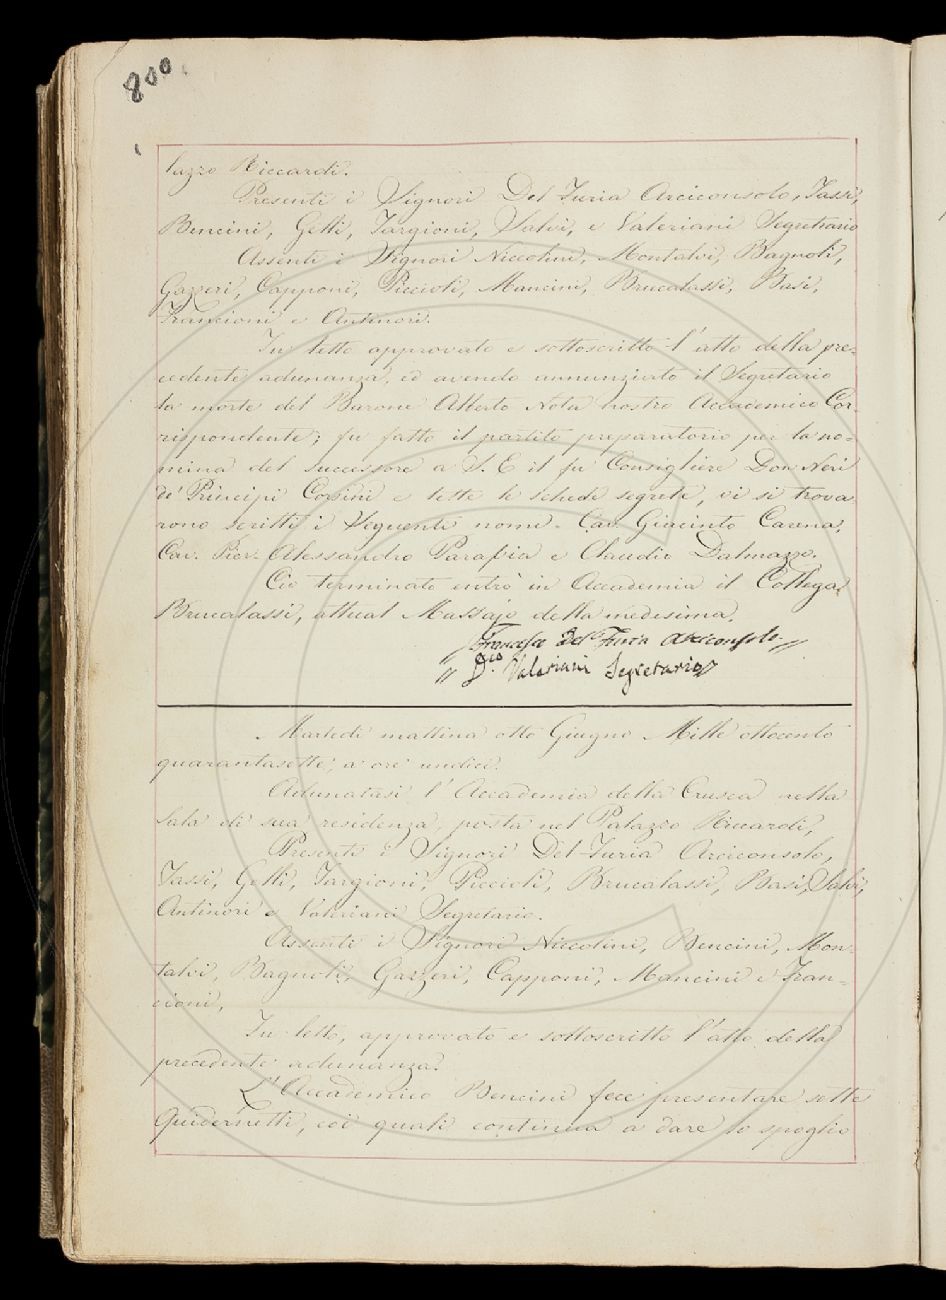 800.
lazzo Riccardi.
Presenti i Signori Del-Furia Arciconsolo, Tassi,
Bencini, Gelli, Targioni, Salvi, e Valeriani Segretrario
Assenti i Signori Niccolini, Montalvi, Bagnoli,
Gazzeri, Capponi, Piccioli, Mancini, Brucalassi, Basi,
Francioni e Antinori.
Fu letto approvato e sottoscritto l'atto della pre-
cedente adunanza, ed avendo annunziato il Segretario
la morte del Barone Alberto Nota nostro Accademico Cor-
rispondente; fu fatto il partito preparatorio per la no-
mina del successore a S. E il fu Consigliere Don Neri
de' Principi Corsini e lette le schede segrete, vi si trova
rono scritti i Seguenti nomi. Cav. Giacinto Carena,
Cav. Pier-Alessandro Paravia e Claudio Dalmazzo.
Ciò terminato entrò in Accademia il Collega
Brucalassi, attual Massajo della medesima.
Francesco Del Furia Arciconsolo
Valeriani Segretario
Martedì mattina otto Giugno Mille ottocento
quarantasette, a ore undici.
Adunatasi l'Accademia della Crusca nella
Sala di sua residenza, posta nel Palazzo Riccardi,
Presenti i Signori Del-Furia Arciconsolo,
Tassi, Gelli, Targioni, Piccioli, Brucalassi, Basi, Salvi,
Antinori e Valeriani Segretario.
Assenti i Signori Niccolini, Bencini, Mon-
talvi, Bagnoli, Gazzeri, Capponi, Mancini e Fran-
cioni,
Fu letto, approvato e sottoscritto l'atto della
precedente adunanza.
L'Accademico Bencini fece presentare sette
Quidernetti, coi quali continua a dare lo spoglio